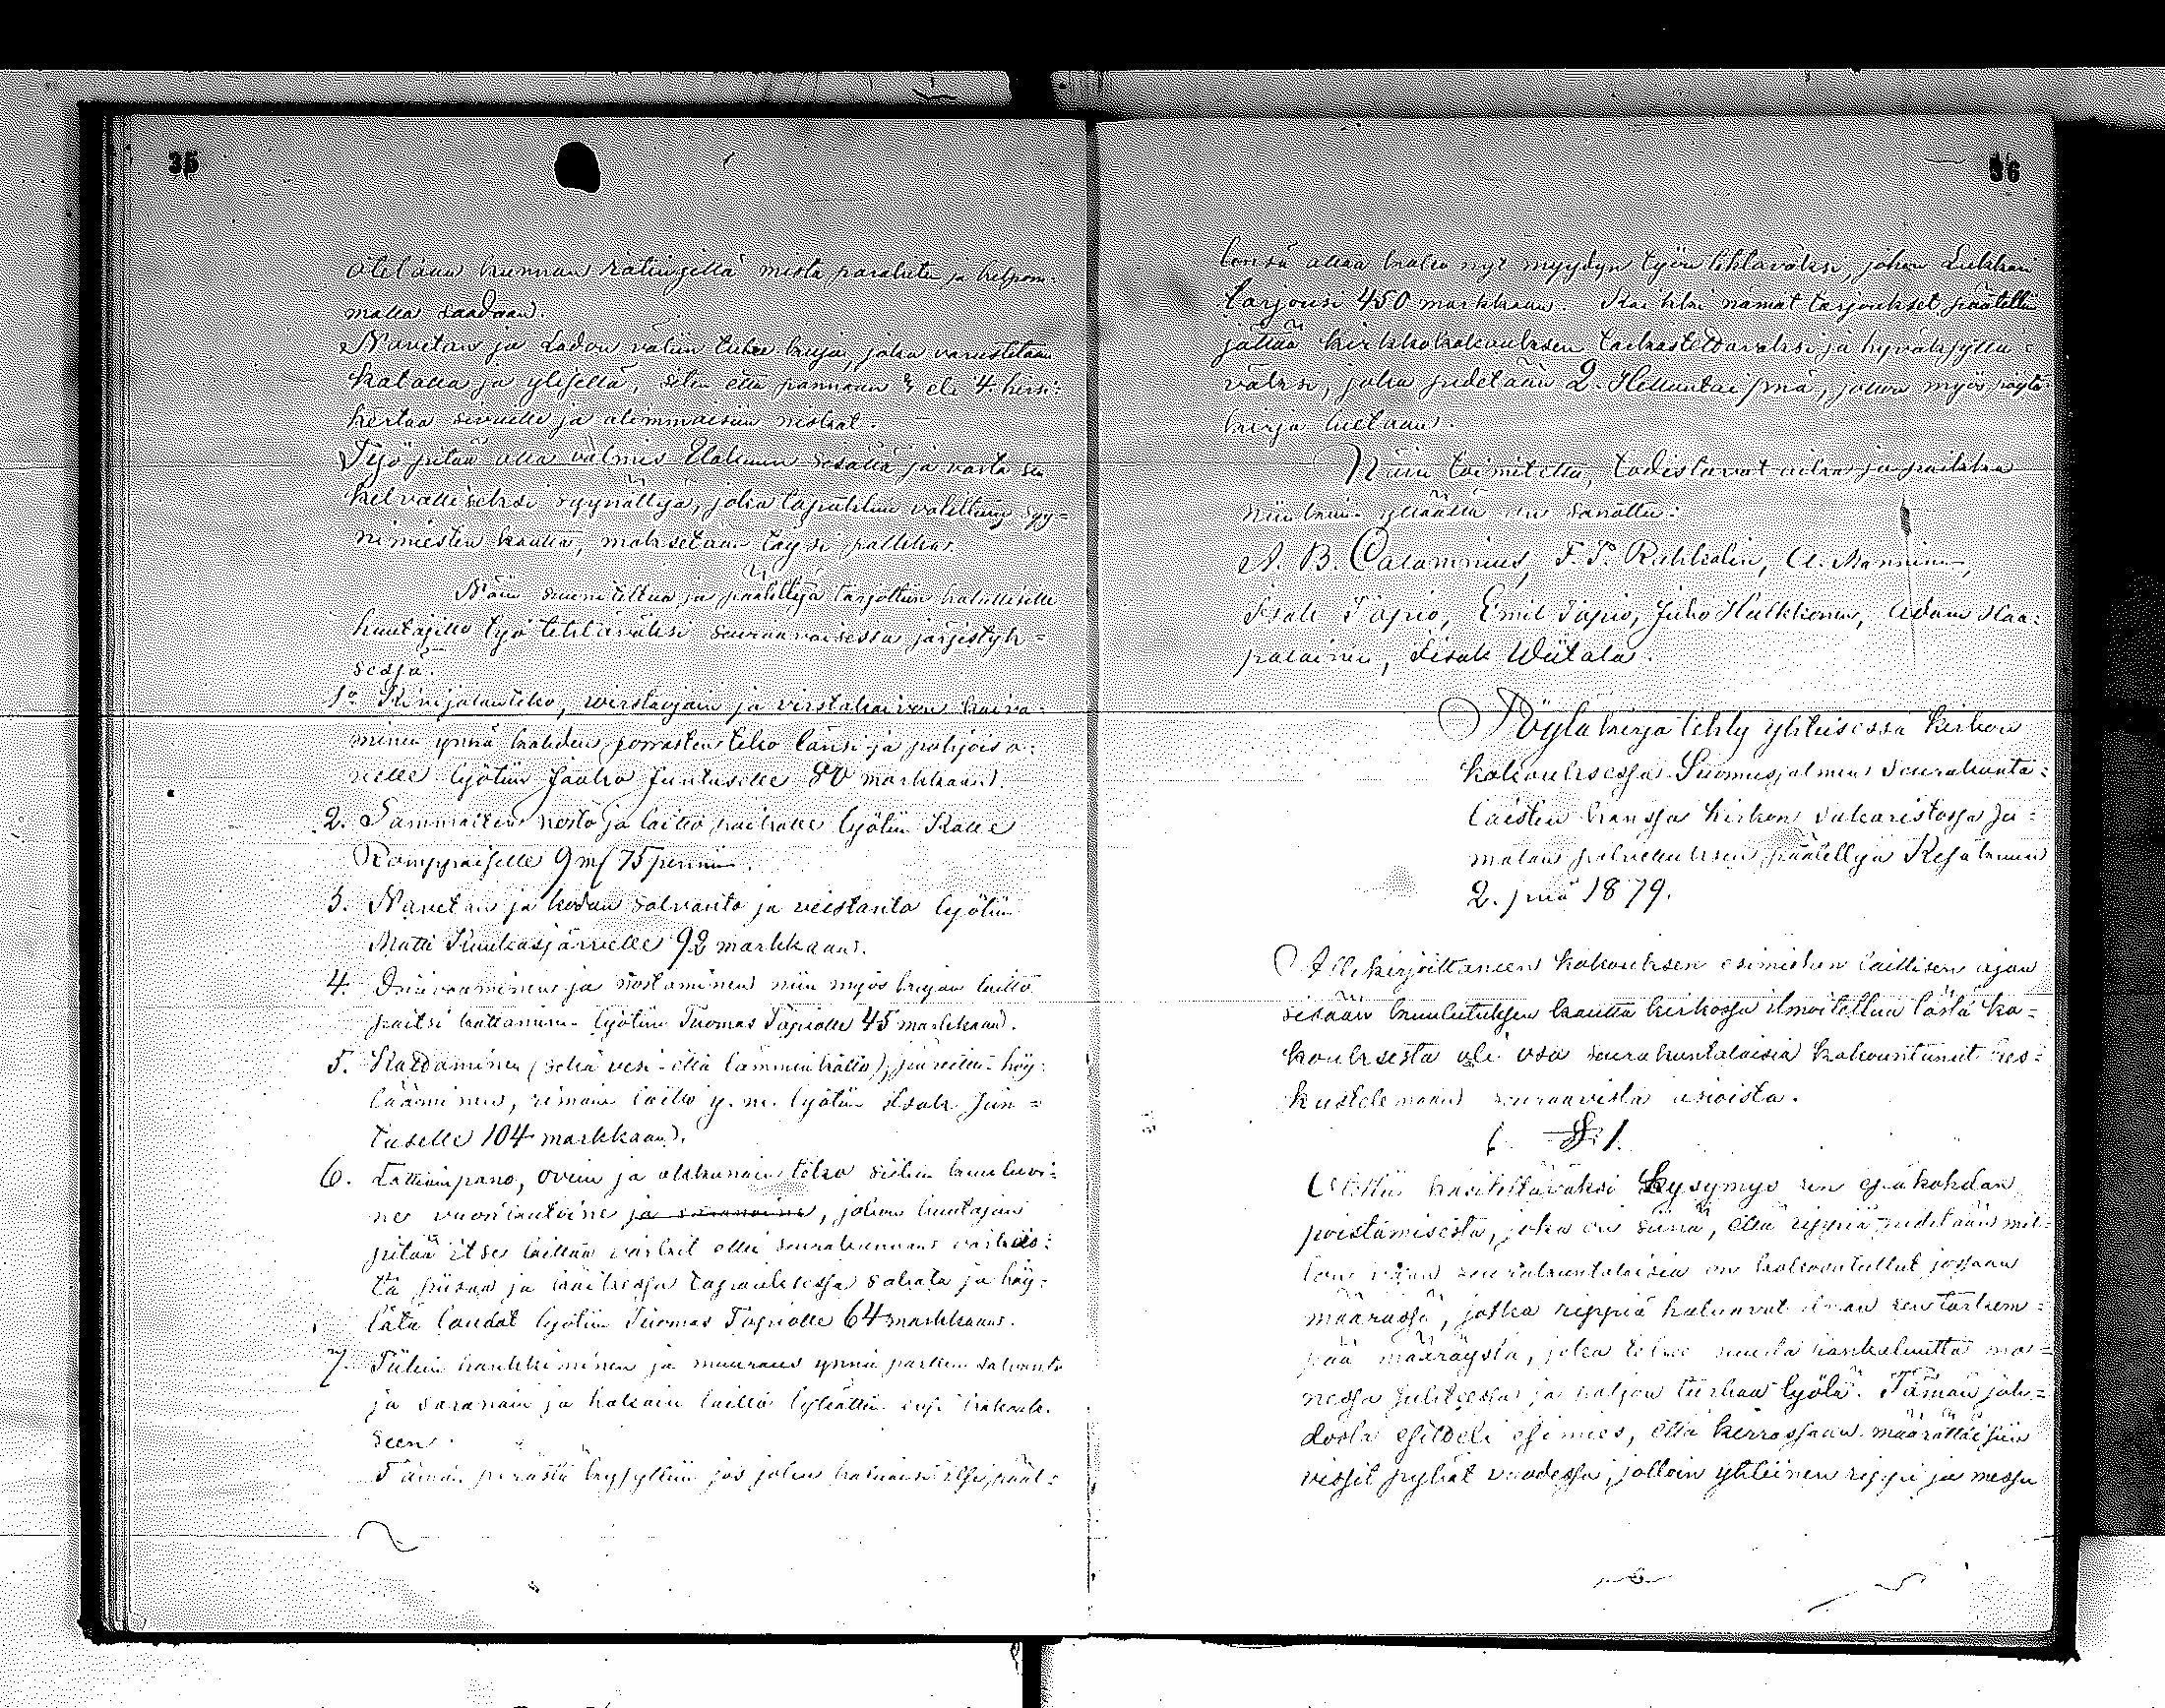 35
otetaan kunnan rätingillä mistä parahite ja helpom-
malla saadaan.
Navetan ja Ladon väliin tulee kuja, joka varustetaan
katolla ja ylisellä, siten että pannaan 3 eli 4 hirsi-
kertaa sivuille ja alimmaisiin niskat.
Työ pitää olla valmis Elokuun sisällä ja vasta sen
kelvolliseksi syynättyä, joka tapahtuu valittuin syy-
nimiesten kautta, maksetaan täysi palkka.
Näin suunniteltua ja päätettyä tarjottiin halulliselle
huutajille työ tehtäväksi seuraavaisessa järjestyk-
sessä.
1o Kivijalanteko, wirstaojain ja virstakaivon kaiva-
minen ynnä kahden porrasten teko länsi ja pohjois o-
velle lyötiin Jaako Juntuselle 80 markkaan.
2. Sammalten nosto ja laitto paikalle lyötiin Kalle
Romppaiselle 9 mf 75 penniin.
3. Navetan ja ladon salvanta ja veistanta lyötiin
Matti Kuukasjärvelle 92 markkaan.
4. ja nostaminen niin myös kujan laitto
paitsi kattaminen lyötiin Tuomas Tapiolle 45 markkaan.
5. Kattaminen (sekä vesi- että lämminkatto), höy-
lääminen, rimain laitto y. m. lyötiin Isak Jun-
tuselle 104 markkaan.
6. Lattiainpano, ovein ja akkunain teko siihen kuuluvi-
ne vuorilautoine ja saranoine, johon huutajan
pitää itse laittaa
ta piisaa ja tapauksessa sahata ja höy-
lätä laudat lyötiin Tuomas Tapiolle 64 markkaan.
7. Tiilein hankkiminen ja muuraus ynnä parren salvanta
ja saranain ja hakain laitto lykättiin kokouk-
seen.
Tämän perästä kysyttiin jos joku haluaisi itse pääl-
36
lensä ottaa koko nyt myydyn työn tehtäväksi, johon Lukkari
tarjousi 450 markkaan. Kaikki nämät tarjoukset päätettiin
jättää kirkkokokouksen tarkastettavaksi ja hyväksyttä-
väksi, joka pidetään 2. Helluntai pnä, jolloin myös pöytä-
kirja luetaan.
Näin toimitettu, todistavat aika ja paikka
niinkuin yllä on sanottu:
A. B. Calamnius, F. P. Rahkolin, A. Manninen,
Isak Tapio, Emil Tapio, Juho Hulkkonen, Adam Haa-
palainen, Iisak Wiitala.
Pöytäkirja tehty yhteisessä kirkon
kokouksessa Suomusjalmen seurakunta-
laisten kanssa kirkon sakaristossa Ju-
malan palveluksen päätettyä Kesäkuun
2. pnä 1879.
Allekirjoittaneen kokouksen esimiehen laillisen ajan
sisään kuulutuksen kautta kirkossa ilmoitettua tästä ko-
kouksesta oli osa seurakuntalaisia kokountunut kes-
kustelemaan seuraavista asioista.
§ 1.
Otettiin käsiteltäväksi kysymys sen epäkohdan
poistamisesta, joka on siinä, että rippiä pidetään mil-
loin vaan seurakuntalaisia on kokoontullut jossaan
määrässä, jotka rippiä haluavat ilman sen tarkem-
pää määräystä, joka tekee muuta hankaluutta mo-
nessa suhteessa ja paljon turhaa työtä. Tämän joh-
dosta esitteli esimies, että kerrassaan määrättäisiin
vissit pyhät vuodessa, jolloin yhteinen rippi ja messu